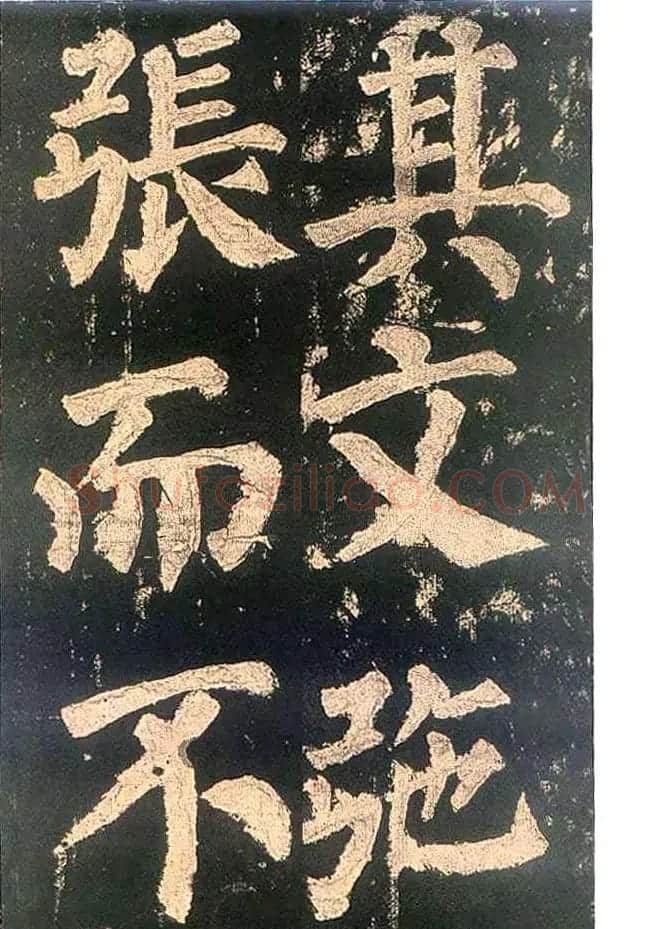 其文弛
張而不
Shufaziliao.COM